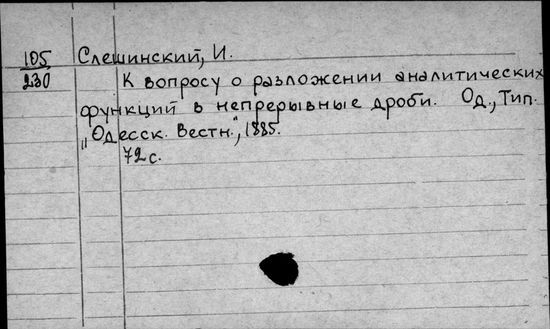 105 Слешинский, И.
230 К вопросу о разложении аналитических
функций в непрерывные дроби. Од., Тип.
„Одесск. Вестн.", 1885.
72 с.